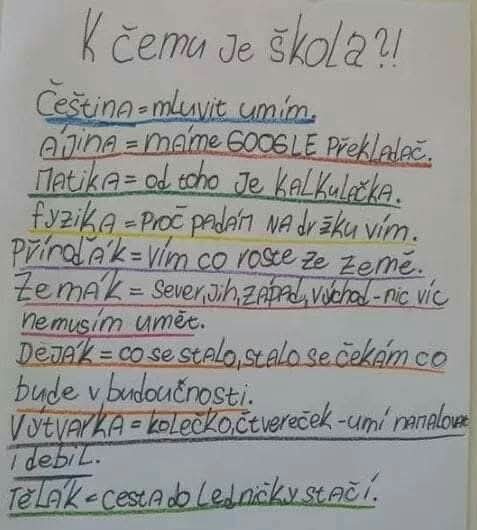 K čemu je škola?!
Čeština = mluvit umím.
Ájina = máme GOOGLE překladač.
Matika = od toho je kalkulačka.
fyzika = proč padám na držku vím.
Příroďák = vím co roste ze země.
Zemák = sever, jih, západ, východ - nic víc
nemusím umět.
Děják = co se stalo, stalo se čekám co
bude v budoučnosti.
Výtvarka = kolečko, čtvereček - umí namalovat
i debil.
Tělák = cesta do ledničky stačí.